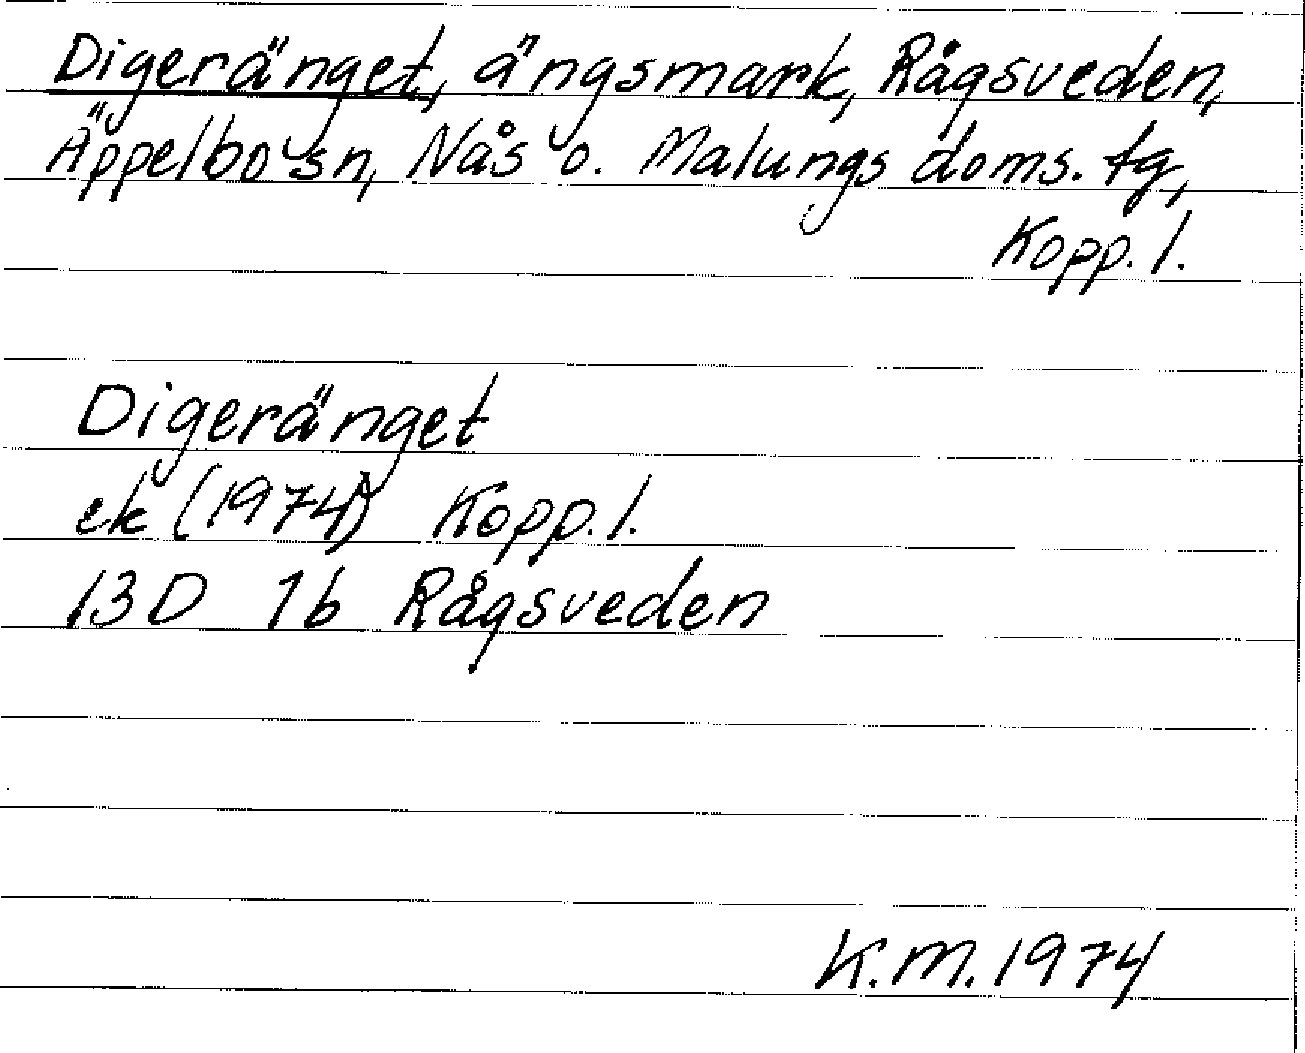 Digeränget, ängsmark, Rågsveden,
Äppelbo sn, Nås o. Malungs doms. tg,
Kopp. l.
Digeränget
ek (1974) Kopp. l.
13D 1b Rågsveden
K.M. 1974